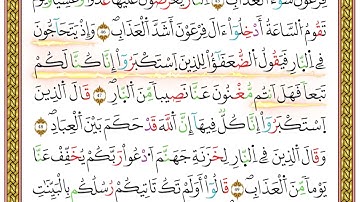 فِرْعَوْنَ سُوٓءُ الْعَذَابِ ۝ اَلنَّارُ يُعْرَضُونَ عَلَيْهَا غُدُوّاً وَعَشِيّاً وَيَوْمَ
تَقُومُ السَّاعَةُ أَدْخِلُوٓاْ ءَالَ فِرْعَوْنَ أَشَدَّ الْعَذَابِ ۝46 وَإِذْ يَتَحَآجُّونَ
فِي النَّارِ فَيَقُولُ الضُّعَفَٰٓؤُاْ لِلذِينَ اَسْتَكْبَرُوٓاْ إِنَّا كُنَّا لَكُمْ
تَبَعاً فَهَلَ اَنتُم مُّغْنُونَ عَنَّا نَصِيباً مِّنَ النَّارِ ۝47 قَالَ الذِينَ
اَسْتَكْبَرُوٓاْ إِنَّا كُلٌّ فِيهَآ إِنَّ اَللَّهَ قَدْ حَكَمَ بَيْنَ الْعِبَادِ ۝48
وَقَالَ الذِينَ فِي النَّارِ لِخَزَنَةِ جَهَنَّمَ اَدْعُواْ رَبَّكُمْ يُخَفِّفْ عَنَّا
يَوْماً مِّنَ الْعَذَابِ ۝49 قَالُوٓاْ أَوَلَمْ تَكُ تَاتِيكُمْ رُسُلُكُم بِالْبَيِّنَٰتِ